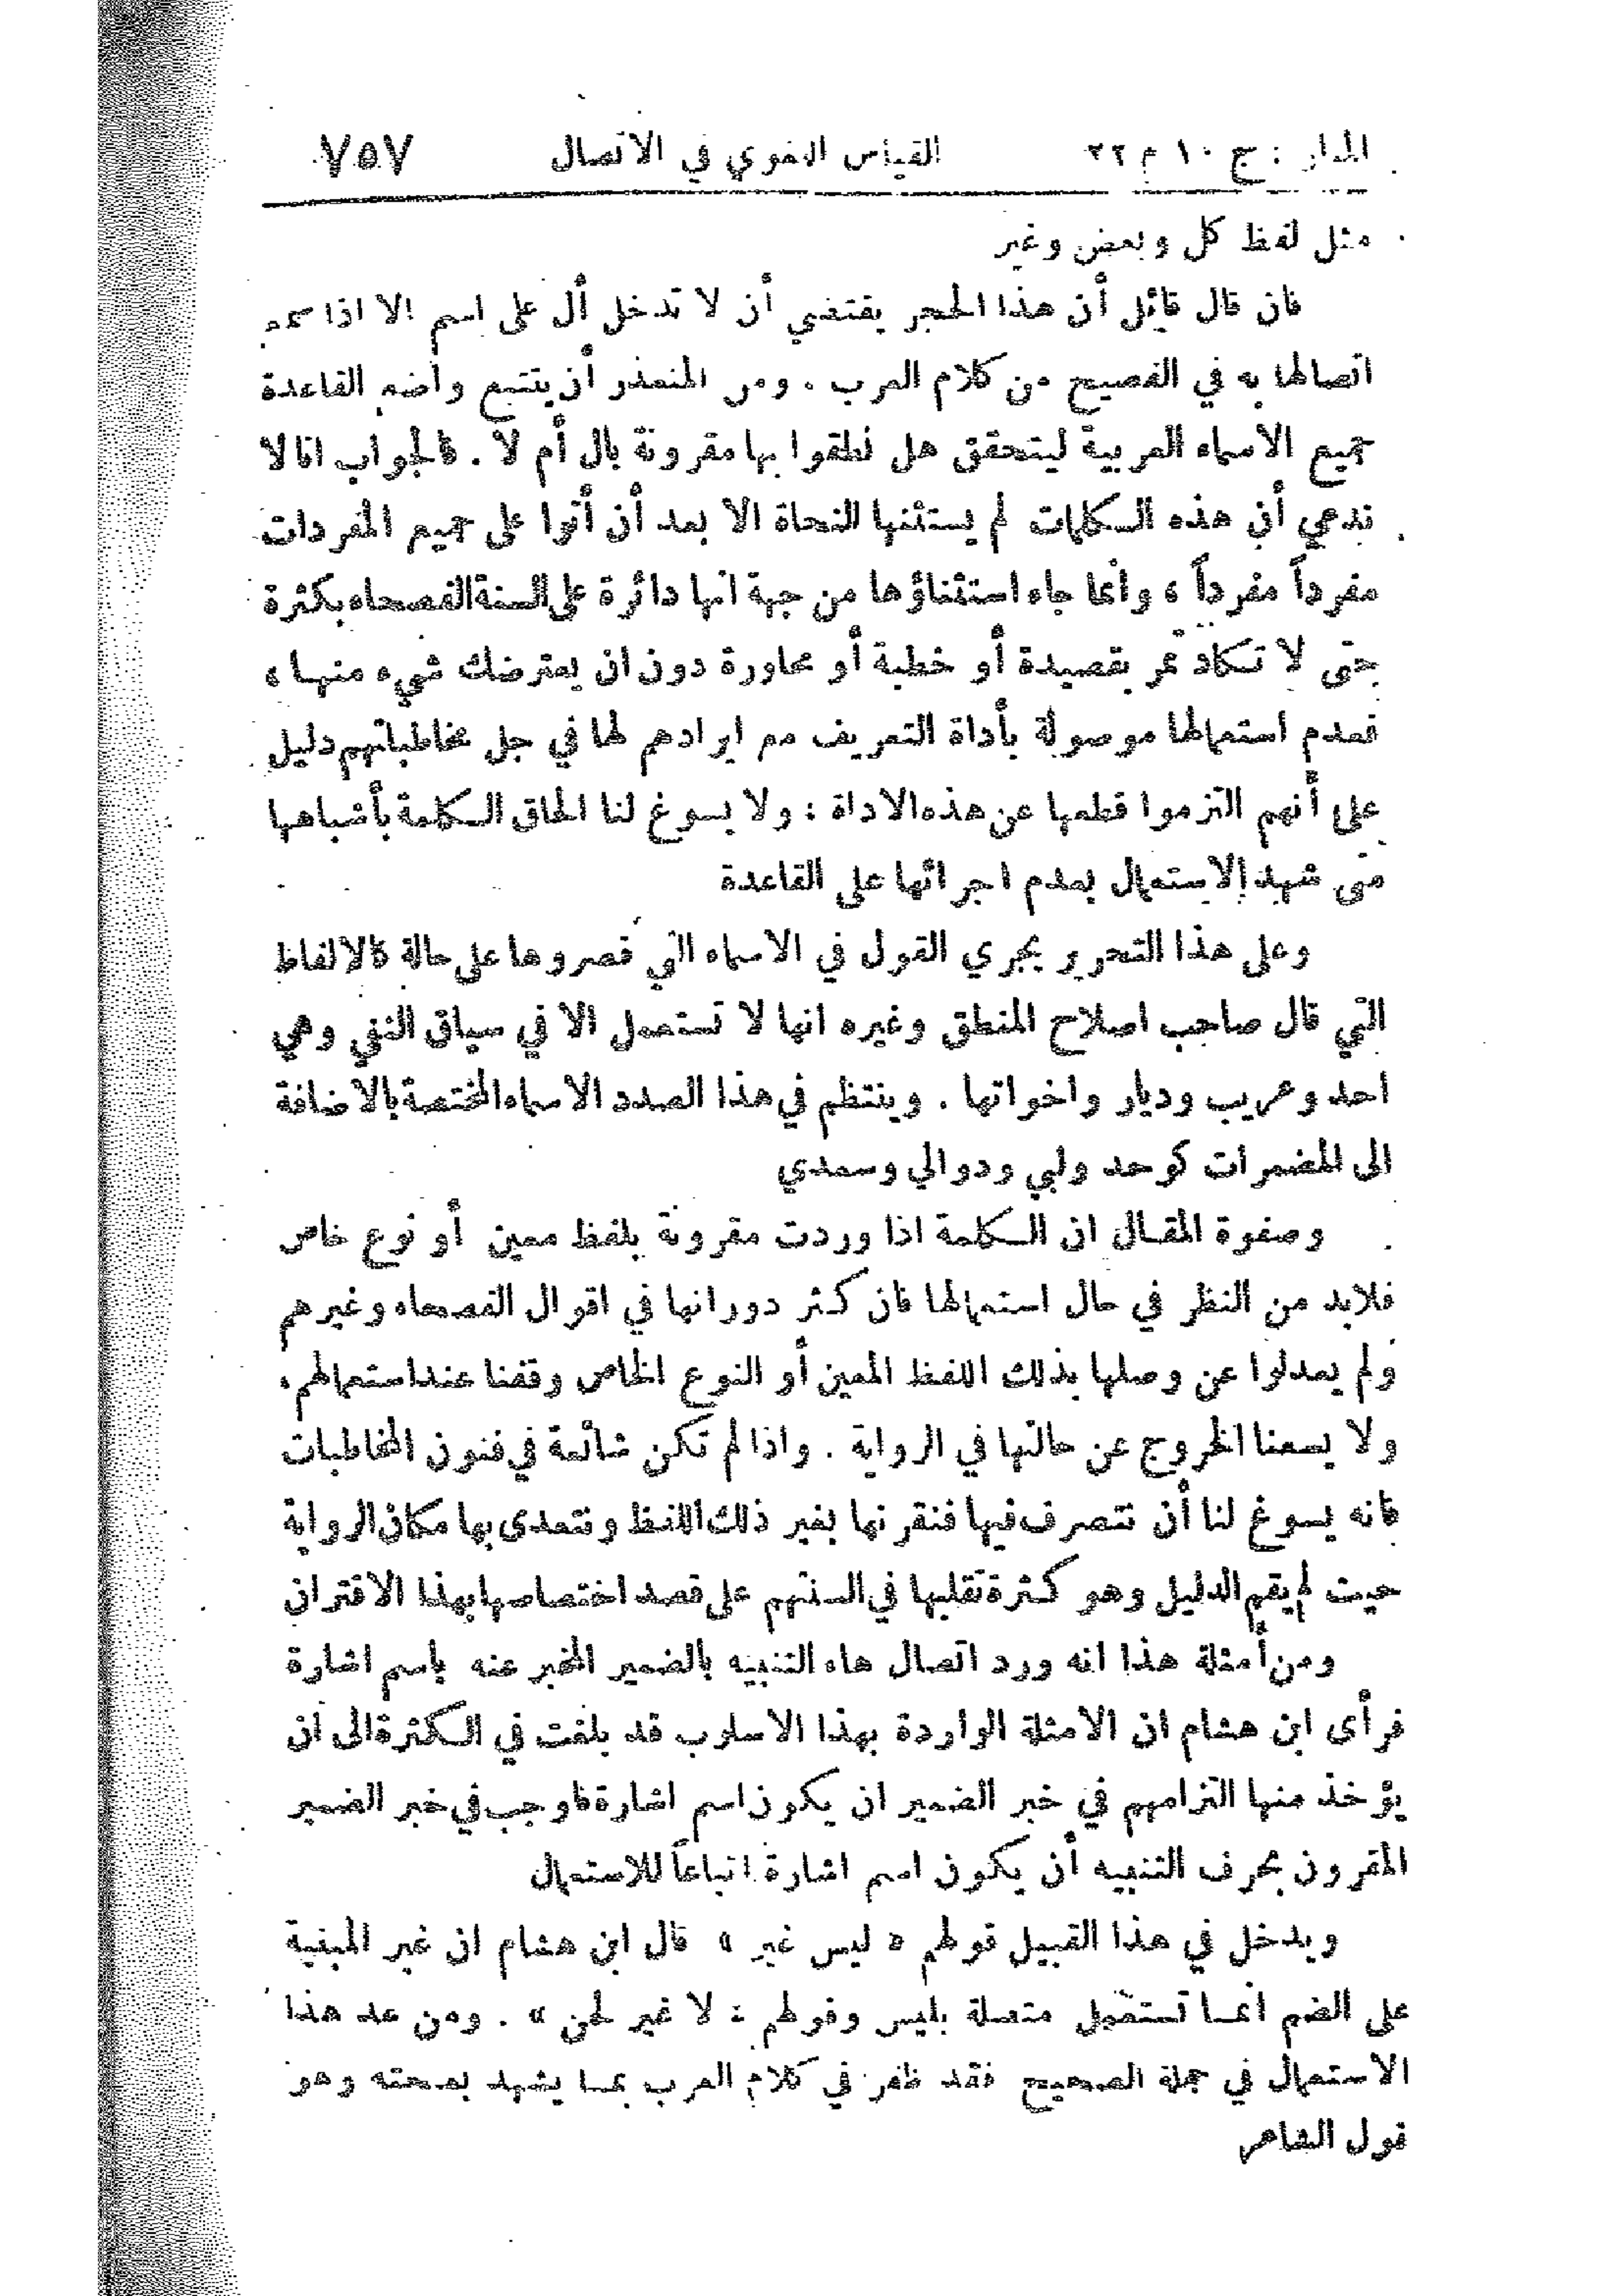 المنار : ج ١٠ م ٢٢ القياس اللغوي في الاتصال ٧٥٧
مثل لفظ كل وبعض وغير
فان قال قائل أن هذا الحجر يقتضي أن لا تدخل أل على اسم الا اذا سمع
اتصالها به في الفصيح من كلام العرب . ومن المتعذر أن يتتبع واضع القاعدة
جميع الاسماء العربية ليتحقق هل نطقوا بها مقرونة بال أم لا . فالجواب انا لا
ندعي أن هذه الكلمات لم يستثنها النحاة الا بعد أن أتوا على جميع المفردات
مفرداً مفرداً ، وانما جاء استثناؤها من جهة انها دائرة على السنة الفصحاء بكثرة
حتى لا تكاد تمر بقصيدة أو خطبة أو محاورة دون ان يعترضك شيء منها ،
فعدم استعمالها موصولة بأداة التعريف مع ايرادهم لها في جل مخاطباتهم دليل
على أنهم التزموا قطعها عن هذه الاداة : ولا يسوغ لنا الحاق الكلمة بأشباهها
متى شهد الاستعمال بعدم اجرائها على القاعدة
وعلى هذا التحرير يجري القول في الاسماء التي قصروها على حالة كالالفاظ
التي قال صاحب اصلاح المنطق وغيره انها لا تستعمل الا في سياق النفي وهي
احد وعريب وديار واخواتها . وينتظم في هذا الصدد الاسماء المختصة بالاضافة
الى المضمرات كوحد ولبي ودوالي وسعدي
وصفوة المقال ان الكلمة اذا وردت مقرونة بلفظ معين أو نوع خاص
فلابد من النظر في حال استعمالها فان كثر دورانها في اقوال الفصحاء وغيرهم
ولم يعدلوا عن وصلها بذلك اللفظ المعين أو النوع الخاص وقفنا عند استعمالهم،
ولا يسعنا الخروج عن حالتها في الرواية . واذا لم تكن شائعة في فنون المخاطبات
فانه يسوغ لنا أن نتصرف فيها فنقرنها بغير ذلك اللفظ ونتعدى بها مكان الرواية
حيث لم يقم الدليل وهو كثرة تقلبها في السنتهم على قصد اختصاصها بهذا الاقتران
ومن أمثلة هذا انه ورد اتصال هاء التنبيه بالضمير المخبر عنه باسم اشارة
فرأى ابن هشام ان الامثلة الواردة بهذا الاسلوب قد بلغت في الكثرة الى أن
يؤخذ منها التزامهم في خبر الضمير ان يكون اسم اشارة فاوجب في خبر الضمير
المقرون بحرف التنبيه أن يكون اسم اشارة اتباعاً للاستعمال
ويدخل في هذا القبيل قولهم « ليس غير » قال ابن هشام ان غير المبنية
على الضم انما تستعمل متصلة بليس وقولهم : لا غير لحن » . ومن عد هذا
الاستعمال في جملة الصحيح فقد ظفر في كلام العرب بما يشهد بصحته وهو
قول الشاعر